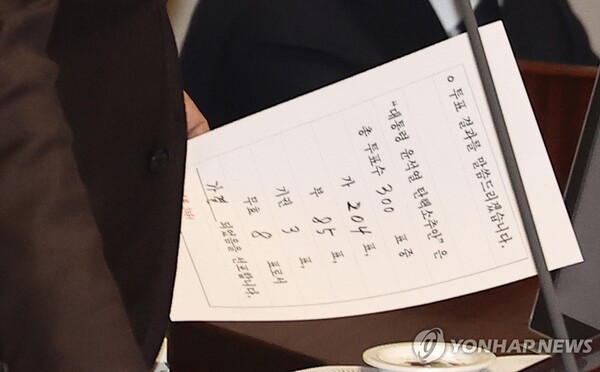 ○ 투표 결과를 말씀드리겠습니다.
"대통령 윤석열 탄핵소추안"은
총 투표수 300 표 중
가 204 표,
부 85 표,
기권 3 표,
무효 8 표로서
가결 되었음을 선포합니다.
YONHAPNEWS